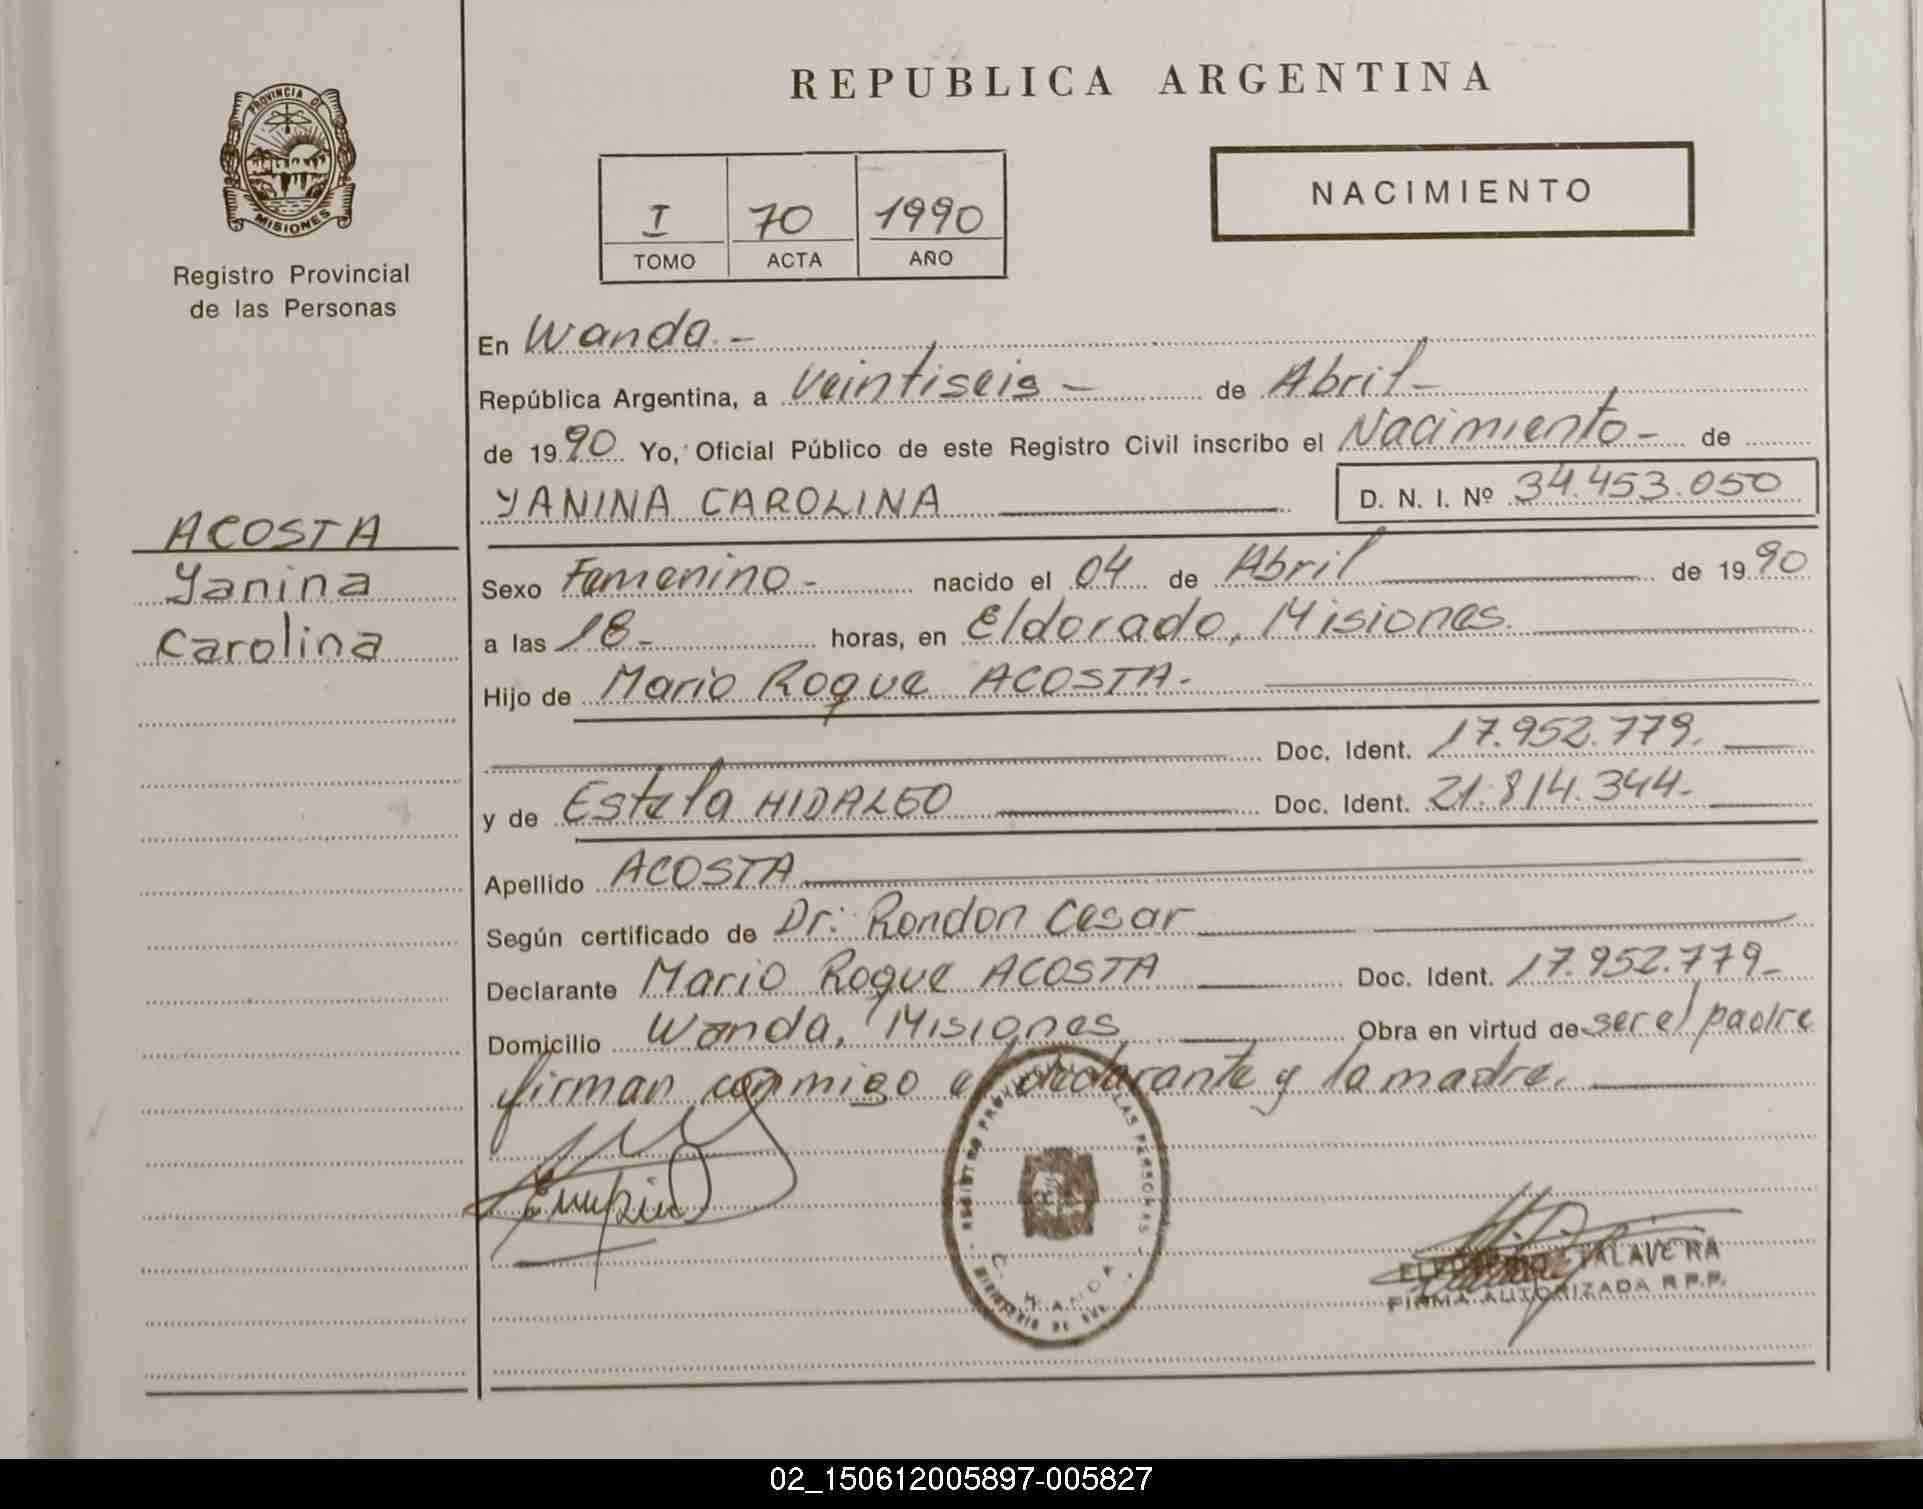 REPUBLICA ARGENTINA
PROVINCIA DE
MISIONES
Registro Provincial
de las Personas
I 70 1990
TOMO ACTA AÑO
NACIMIENTO
En Wanda.-
República Argentina, a veintiseis - de Abril -
de 1990 Yo, Oficial Público de este Registro Civil inscribo el Nacimiento - de
YANINA CAROLINA D. N. I. Nº 34.453.050
ACOSTA
Yanina
Carolina
Sexo Femenino - nacido el 04 de Abril de 1990
a las 18 - horas, en Eldorado, Misiones.
Hijo de Mario Roque ACOSTA.-
Doc. Ident. 17.952.779.
y de Estela HIDALGO Doc. Ident. 21.814.344-
Apellido ACOSTA
Según certificado de Dr: Rondon Cesar
Declarante Mario Roque ACOSTA Doc. Ident. 17.952.779-
Domicilio Wanda, Misiones Obra en virtud de ser el padre
firman conmigo el declarante y la madre.
REGISTRO PROVINCIAL DE LAS PERSONAS
WANDA
TALAVERA
FIRMA AUTORIZADA R.P.P.
02_150612005897-005827